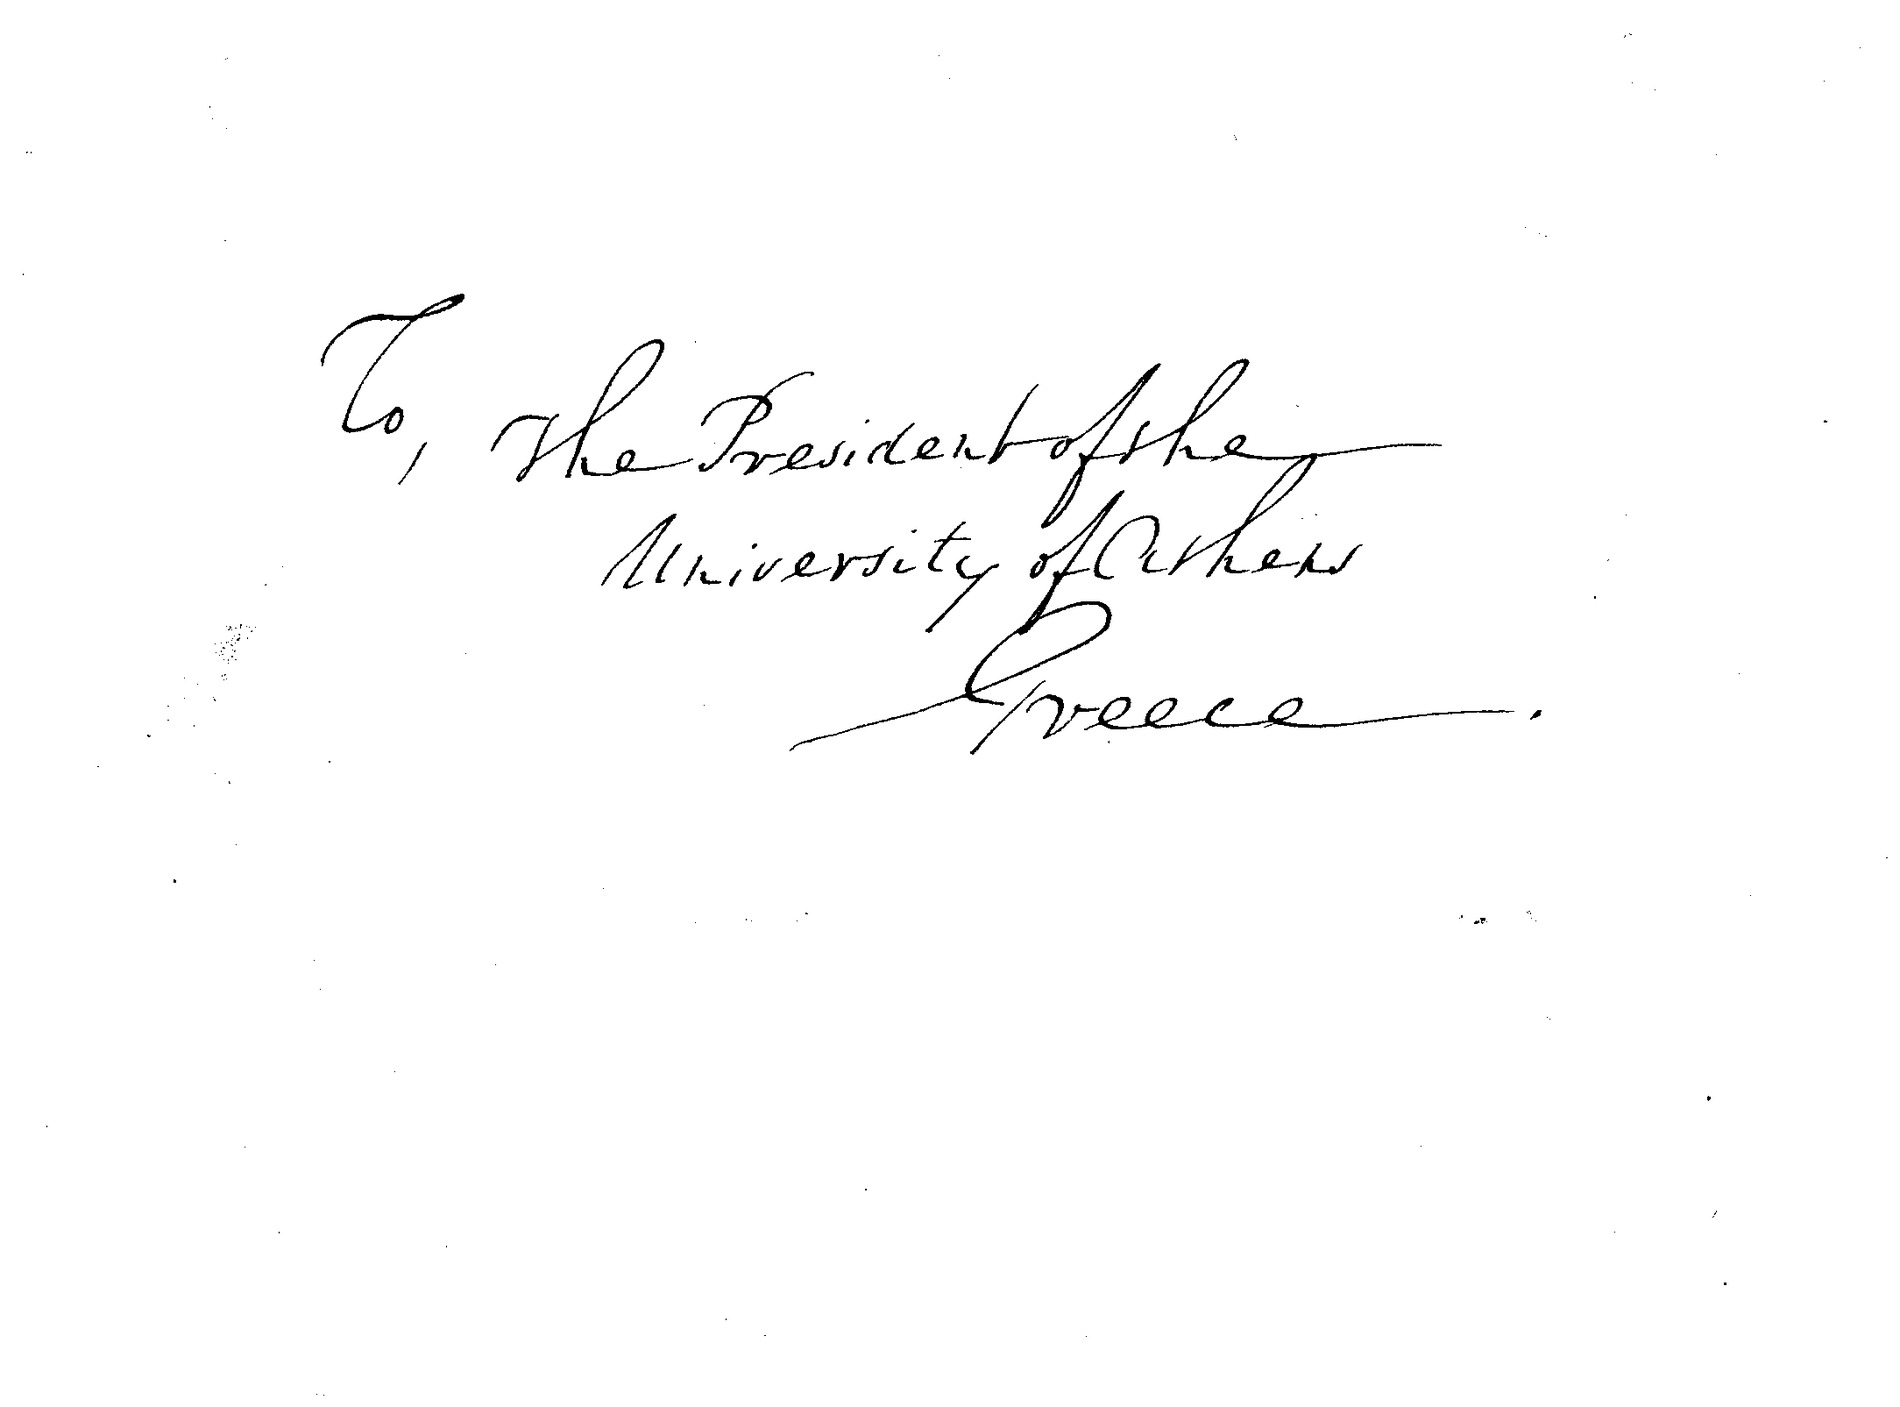 To, The President of the
University of Athens
Greece.